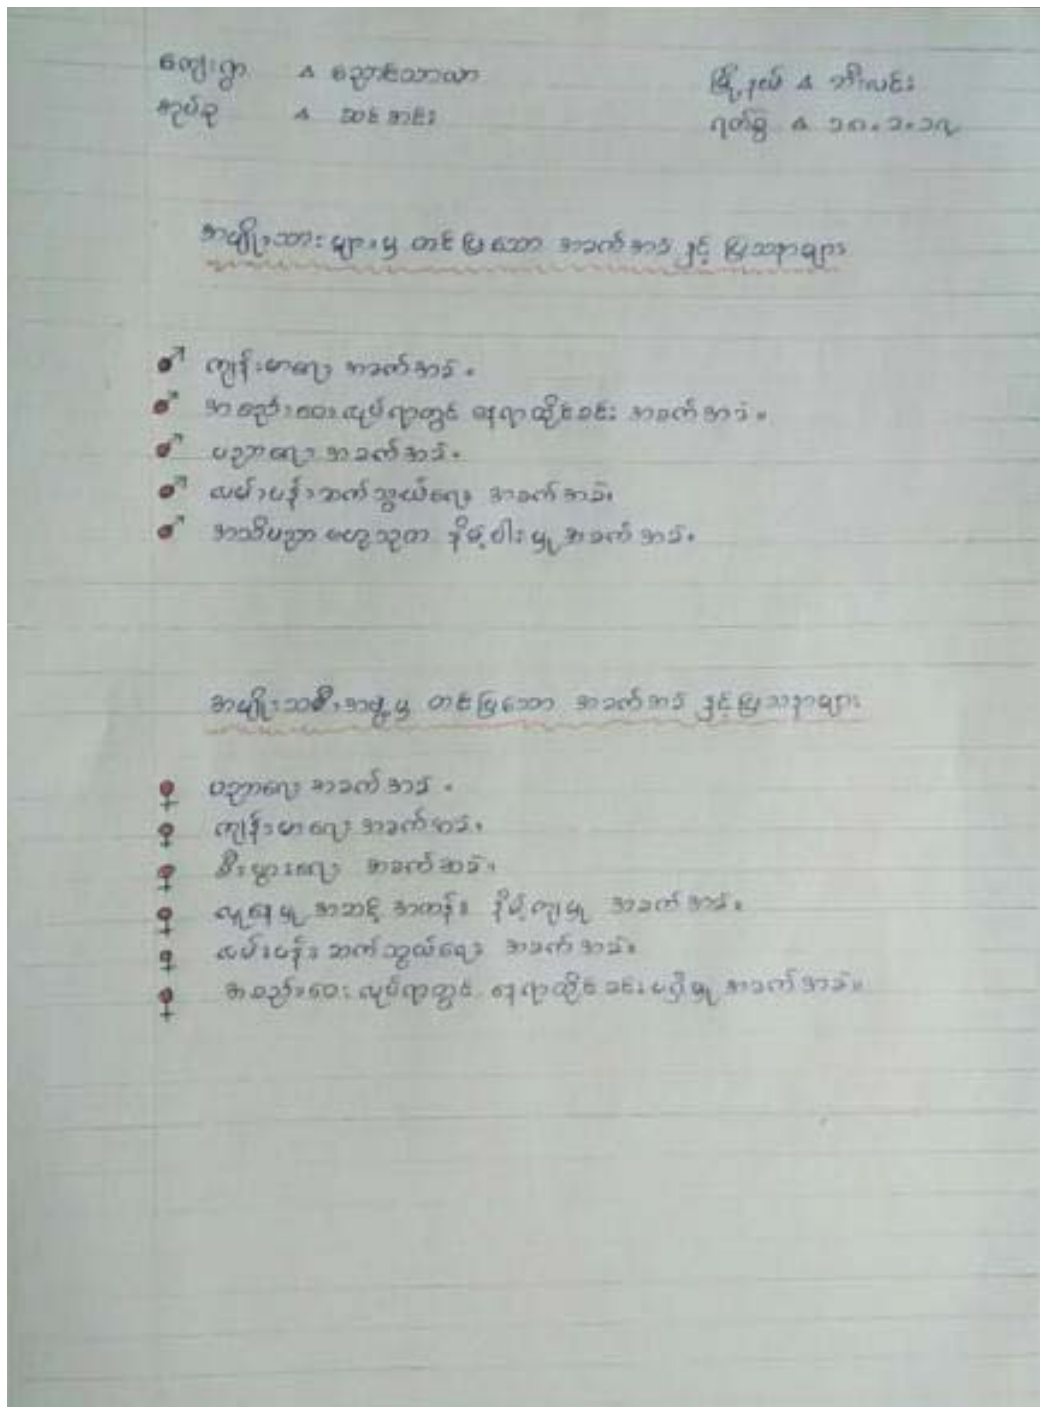 ကျေးရွာ ▵ ညောင်သာယာ မြို့နယ် ▵ ဘီးလင်း
အုပ်စု ▵ ဆင်အင်း ရက်စွဲ ▵ ၁၈.၁.၁၃
အမျိုးသားများမှ တင်ပြသော အခက်အခဲ နှင့် ပြဿနာများ
♂ ကျန်းမာရေး အခက်အခဲ။
♂ အစည်းဝေးလုပ်ရာတွင် နေရာထိုင်ခင်း အခက်အခဲ။
♂ ပညာရေး အခက်အခဲ။
♂ လမ်းပန်းဆက်သွယ်ရေး အခက်အခဲ။
♂ အသိပညာ ဗဟုသုတ နိမ့်ပါးမှု အခက်အခဲ။
အမျိုးသမီးအဖွဲ့မှ တင်ပြသော အခက်အခဲ နှင့် ပြဿနာများ
♀ ပညာရေး အခက်အခဲ။
♀ ကျန်းမာရေး အခက်အခဲ။
♀ စီးပွားရေး အခက်အခဲ။
♀ လူနေမှု အဆင့် အတန်း နိမ့်ကျမှု အခက်အခဲ။
♀ လမ်းပန်းဆက်သွယ်ရေး အခက်အခဲ။
♀ အစည်းဝေး လုပ်ရာတွင် နေရာထိုင်ခင်းမရှိမှု အခက်အခဲ။